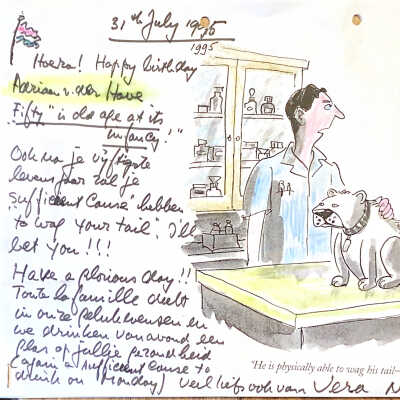 31th July 1995
1995
Hoera! Happy birthday
Adriaan v. der Hove
"Fifty" is old age at its
infancy!"
Ook na je vijftigste
levensjaar zal je
"sufficient cause" hebben
"to wag your tail". I'll
bet you!!!
Have a glorious day!!
Toute la famille deelt
in onze gelukwensen en
we drinken vanavond een
glas op jullie gezondheid
(again a sufficient cause to
drink on Monday) veel liefs ook van Vera
"He is physically able to wag his tail—